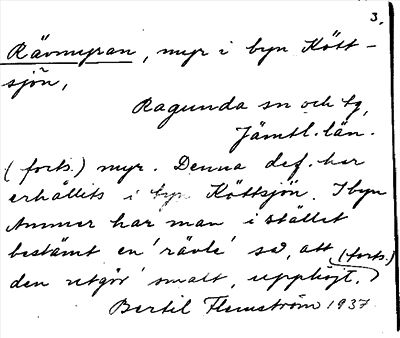 3.
Rävmyran, myr i byn Kött-
sjön,
Ragunda sn och tg,
Jämtl. län.
(forts.) myr. Denna def. har
erhållits i byn Köttsjön. I byn
Ammer har man i stället
bestämt en 'rävle' så, att
den utgör 'smalt, upphöjt. (forts.)
Bertil Flemström 1937